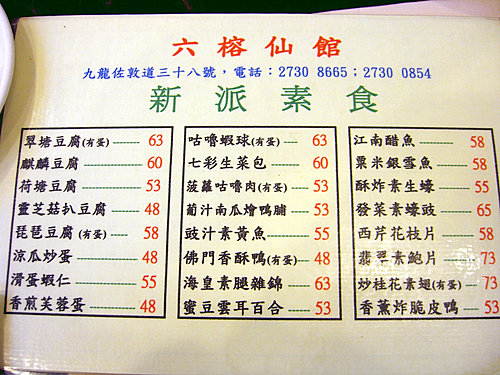 六榕仙館
九龍佐敦道三十八號，電話：2730 8665；2730 0854
新派素食
翠塘豆腐(有蛋) -------- 63
麒麟豆腐 -------- 60
荷塘豆腐 -------- 53
靈芝菇扒豆腐 -------- 48
琵琶豆腐(有蛋) ---- 58
涼瓜炒蛋 -------- 48
滑蛋蝦仁 -------- 55
香煎芙蓉蛋 -------- 48
咕嚕蝦球(有蛋) ---- 63
七彩生菜包 -------- 60
菠蘿咕嚕肉(有蛋) --- 53
葡汁南瓜燴鴨脯 ---- 53
豉汁素黃魚 -------- 55
佛門香酥鴨(有蛋) -- 48
海皇素腿雜錦 ------ 63
蜜豆雲耳百合 ------ 53
江南醋魚 -------- 58
粟米銀雪魚 -------- 58
酥炸素生蠔 -------- 55
發菜素蠔豉 -------- 65
西芹花枝片 -------- 58
翡翠素鮑片 -------- 73
炒桂花素翅(有蛋) -- 73
香薰炸脆皮鴨 ---- 53